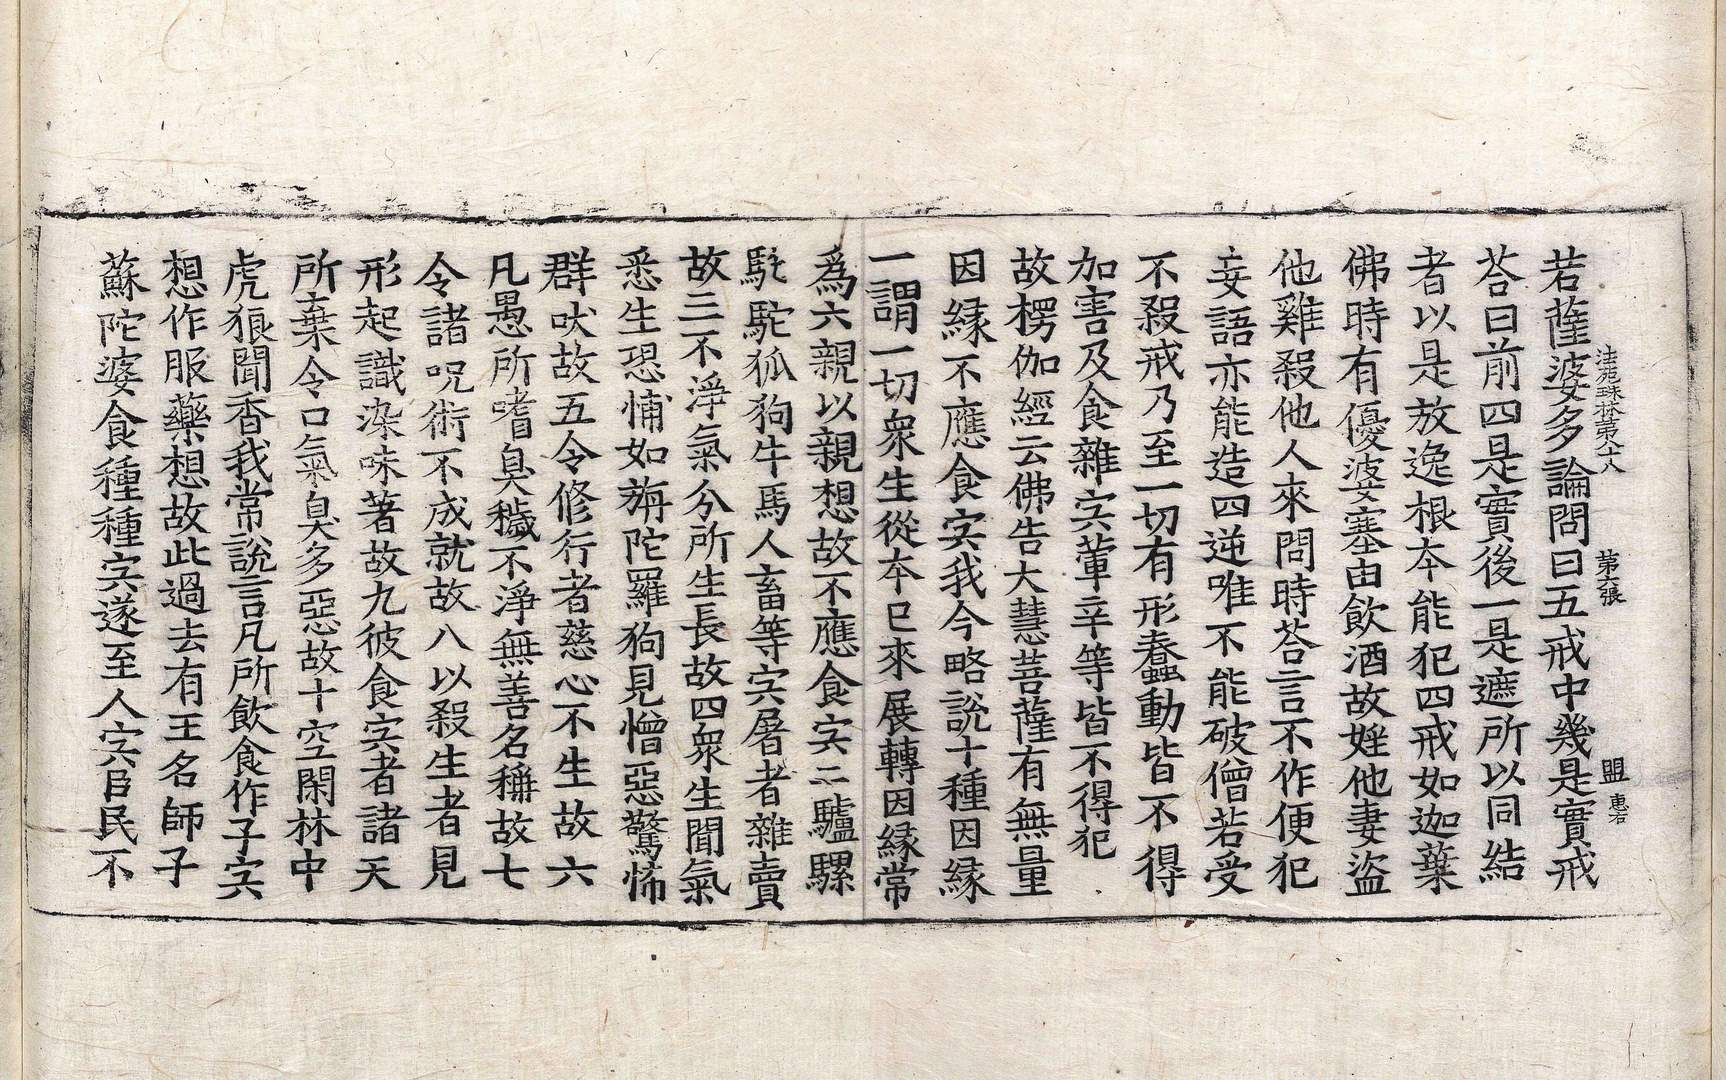 若薩婆多論問曰五戒中幾是實戒
荅曰前四是實後一是遮所以同結
者以是放逸根本能犯四戒如迦葉
佛時有優婆塞由飲酒故婬他妻盜
他雞殺他人來問時荅言不作便犯
妄語亦能造四逆唯不能破僧若受
不殺戒乃至一切有形蠢動皆不得
加害及食雜宍葷辛等皆不得犯
故楞伽經云佛告大慧菩薩有無量
因縁不應食宍我今略説十種因縁
一謂一切衆生從本已來展轉因縁常
爲六親以親想故不應食宍二驢騾
駞駝狐狗牛馬人畜等宍屠者雜賣
故三不淨氣分所生長故四衆生聞氣
悉生恐怖如旃陀羅狗見憎惡驚怖
群吠故五令修行者慈心不生故六
凡愚所嗜臭穢不淨無善名稱故七
令諸呪術不成就故八以殺生者見
形起識染味著故九彼食宍者諸天
所棄令口氣臭多惡故十空閑林中
虎狼聞香我常説言凡所飲食作子宍
想作服藥想故此過去有王名師子
蘇陀婆食種種宍遂至人宍臣民不
法苑珠林第八十八 第六張 盟 惠若